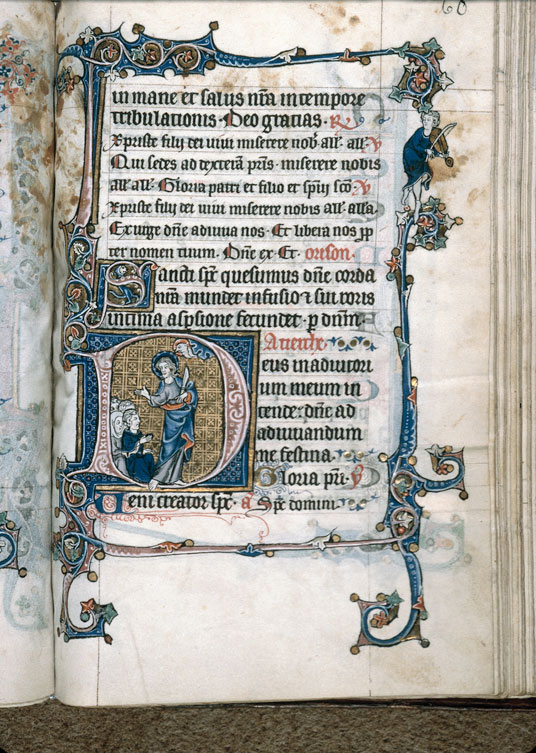 60
in mane et salus nr̃a in tempore
tribulationis · Deo gracias · R
Xpriste filij dei uiui miserere nob̾ all̃e all̃e · V
Qui sedes ad dexterã pr̃is · miserere nobis
all̃e all̃e · Gloria patri et filio et sp̃ui sc̃o · V
Xpriste filij dei uiui miserere nobis all̃e all̃a
Exurge dñe adiuua nos · Et libera nos pp̃
ter nomen tuum · Dñe ex Et · orison ·
Sancti sp̃c quesumus dñe corda
nr̃a mundet infusio ⁊ sui roris
intima aspsione fecundet · p dñm ·
A tierche ·
Deus in adiutori
um meum in
tende : dñe ad
adiuuandum
me festina ·
Gloria pr̃i · V
Ueni creator sp̃c · a Sp̃c domini ·